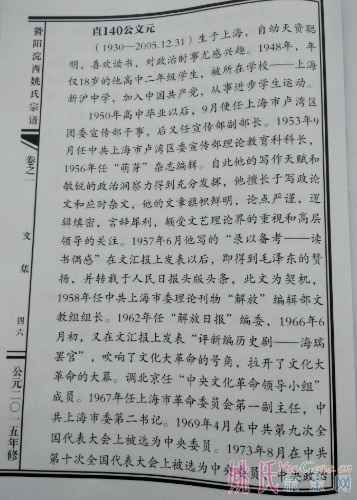 直140公文元
（1930—2005.12.31）生于上海，自幼天资聪
明，喜欢读书，对政治时事尤感兴趣。1948年，年
仅18岁的他高中二年级学生，被所在学校——上海
新沪中学，加入中国共产党，从事进步学生运动。
1950年高中毕业以后，9月便任上海市卢湾区
团委宣传部干事，后又任宣传部副部长。1953年9
月任中共上海市卢湾区委宣传部理论教育科科长，
1956年任“萌芽”杂志编辑。自此他的写作天赋和
敏锐的政治洞察力得到充分发挥，他擅长于写政论
文和应时杂文，他的文章旗帜鲜明，论点严谨，逻
辑缜密，言辞犀利，颇受文艺理论界的重视和高层
领导的关注。1957年6月他写的“录以备考——读
书偶感”在文汇报上发表以后，即得到毛泽东的赞
扬，并转载于人民日报头版头条，此文为契机，
1958年任中共上海市委理论刊物“解放”编辑部文
教组组长。1962年任“解放日报”编委，1966年6
月初，又在文汇报上发表“评新编历史剧——海瑞
罢官”，吹响了文化大革命的号角，拉开了文化大
革命的大幕。调北京任“中央文化革命领导小组”
成员。1967年任上海市革命委员会第一副主任，中
共上海市委第二书记。1969年4月在中共第九次全
国代表大会上被选为中央委员。1973年8月在中共
第十次全国代表大会上被选为中央委员、中央政治
暨阳浣西姚氏宗谱
卷之一
文
焦
四六
公元二〇一五年修
姚氏宗亲网